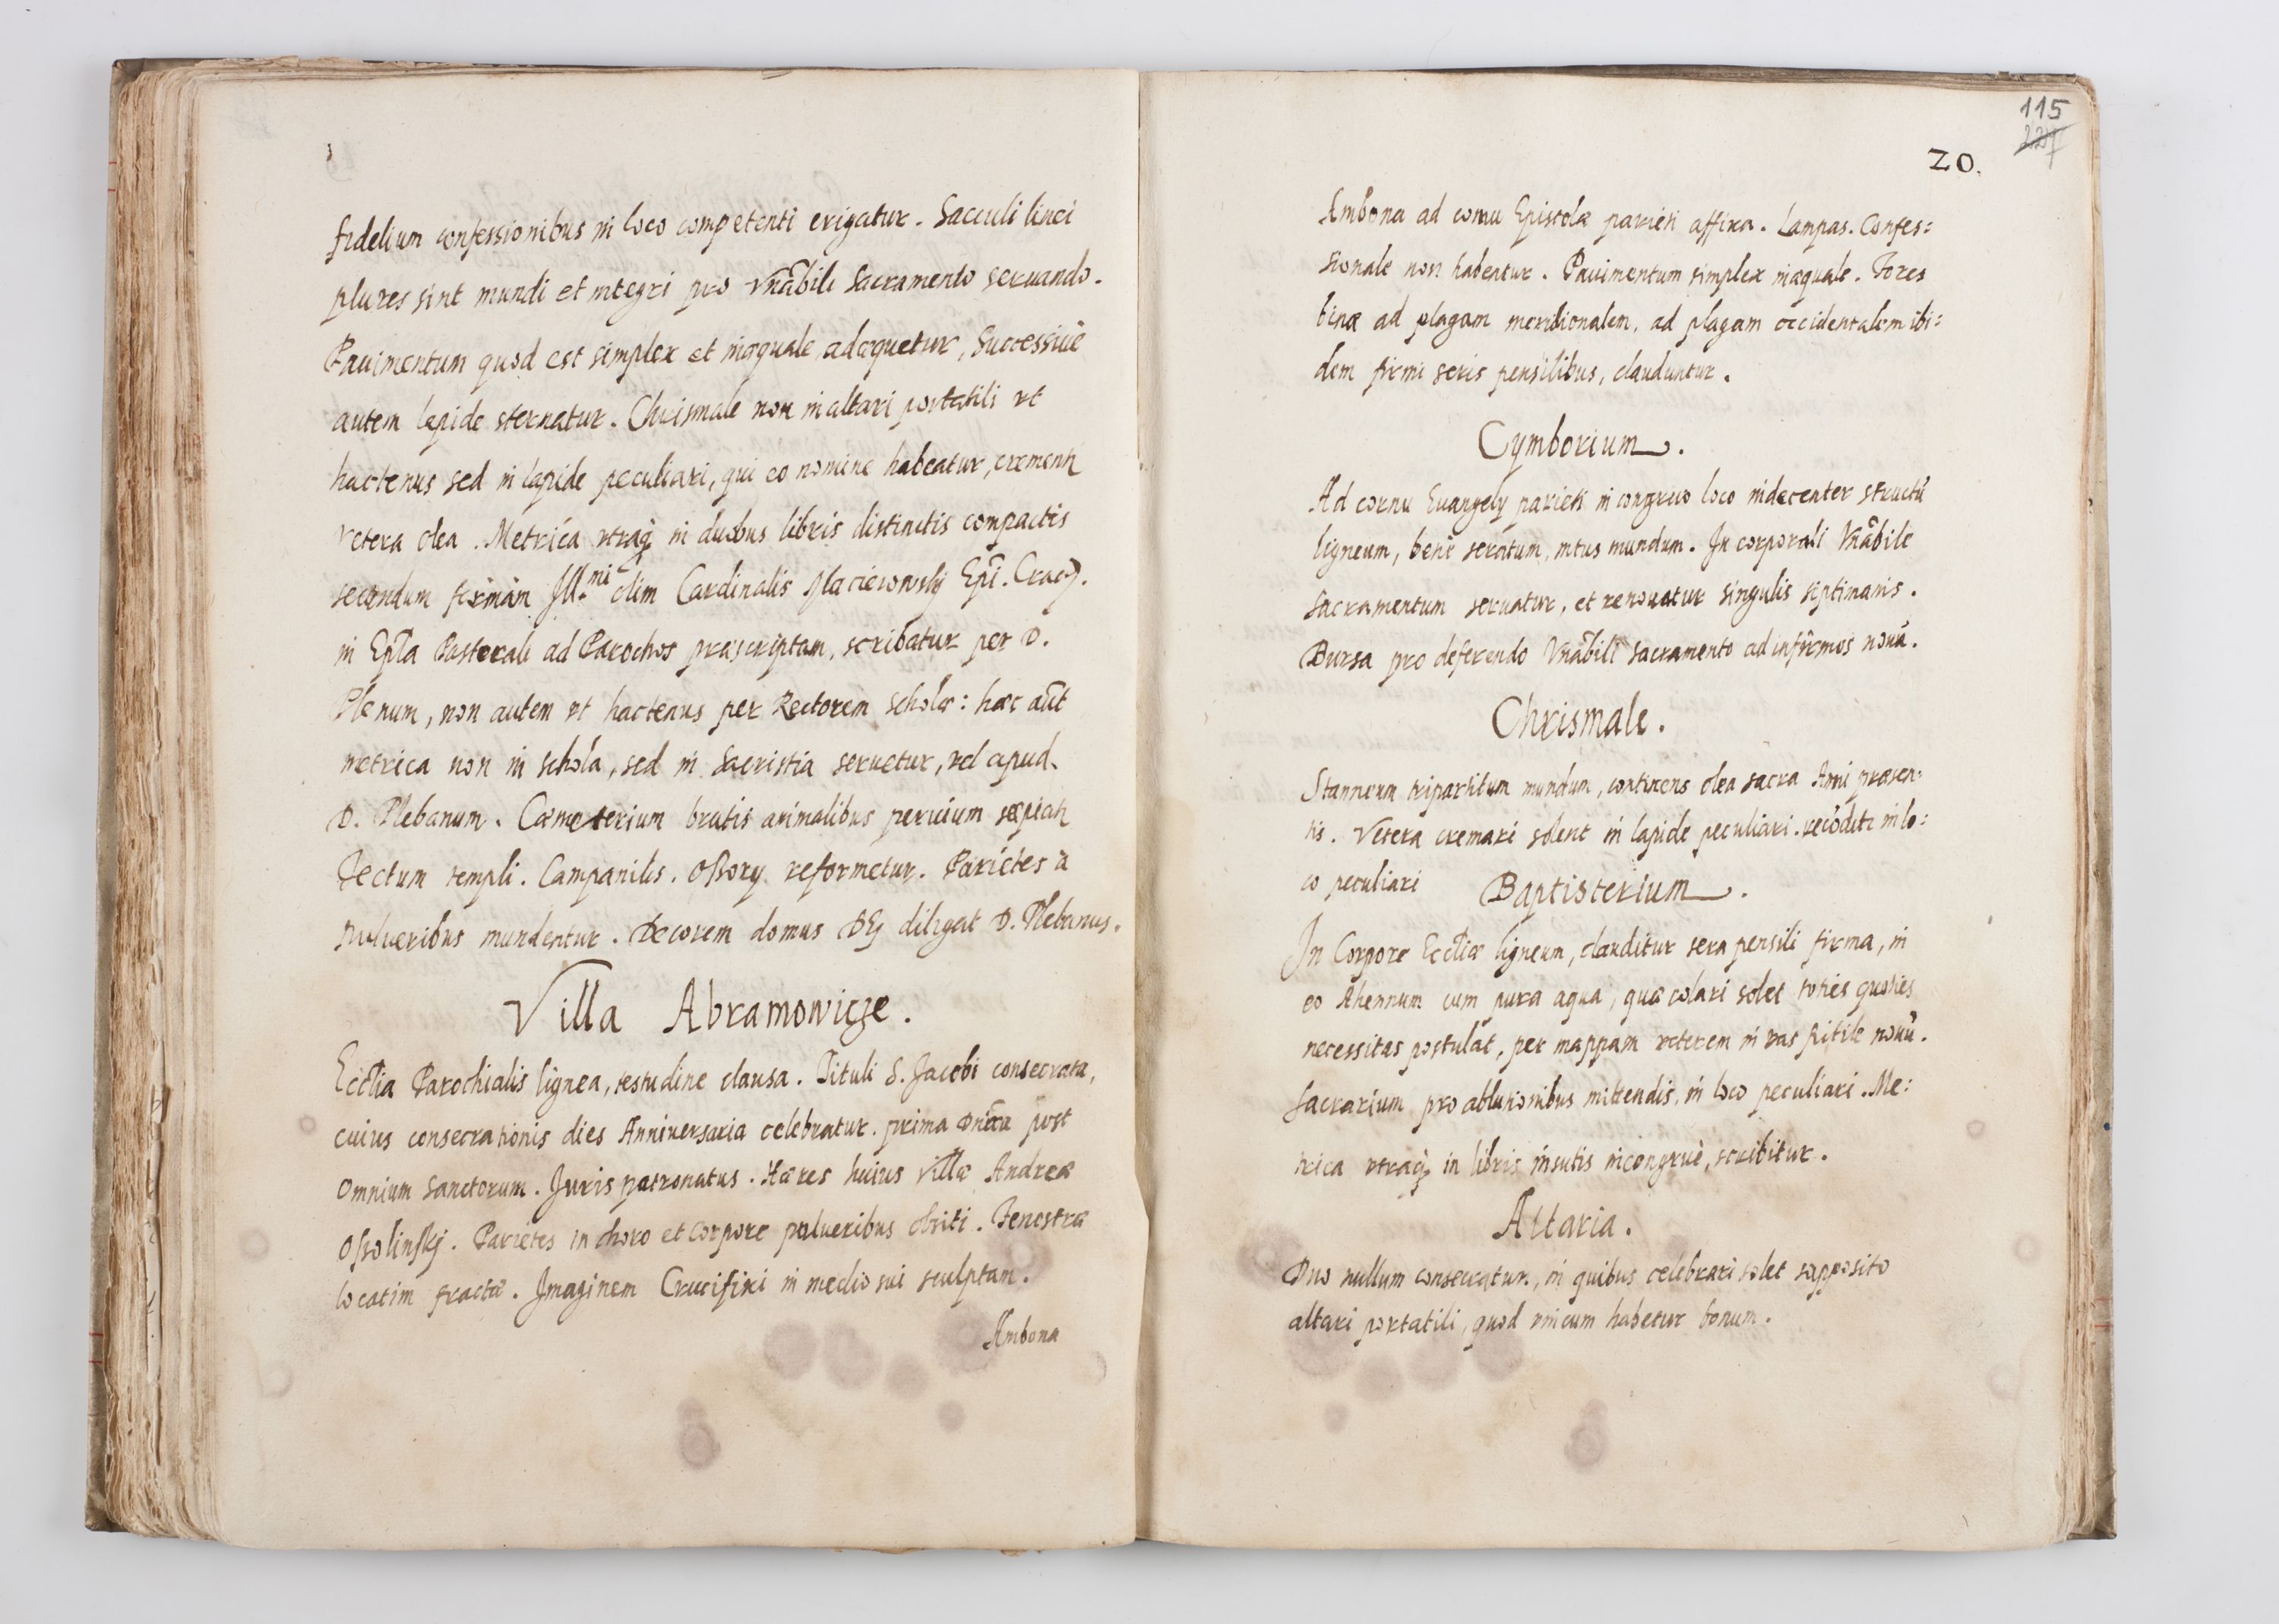 fidelium confessionibus in loco competenti erigatur. Sacculi linei
plures sint mundi et integri pro Vnãbili Sacramento seruando.
Pauimentum quod est simplex et inæquale adæquetur, Successiuè
autem lapide sternatur. Chrismale non in altari portatili vt
hactenus sed in lapide peculiari, qui eo nomine habeatur,
vetera olea. Metrica vtraq in duobus libris distinctis compactis
secundum formam Ill.mi olim Cardinalis Maciewowskj Epĩ. Crac.
in Epla Pastorali ad Parochos præscriptam, scribatur per D.
Plenum, non autem vt hactenus per Rectorem scholæ: hæc aũt
metrica non in schola, sed in Sacristia seruetur, vel apud
D. Plebanum. Cæmeterium brutis animalibus peruium
Tectum templi. Campanilis. Ossory reformetur. Parietes à
pulueribus mundentur. Decorem domus DEj diligat D. Plebanus.
Villa Abramowicze.
Ecclia Parochialis lignea, testudine clausa. Tituli S. Jacobi consecrata,
cuius consecrationis dies Anniuersaria celebratur. prima Dnĩca post
Omnium Sanctorum. Juris patronatus. Hæres huius Villæ Andreæ
Ossolinskj. Parietes in choro et corpore pulueribus obsiti. Fenestræ
locatim fractæ. Imaginem Crucifixi in medio sui sculptam.
Ambona
115
227
20.
Ambona ad cornu Epistolæ parieti affixa. Lampas. Confes:
sionale non habentur. Pauimentum simplex inæquale. Fores
binæ ad plagam meridionalem, ad plagam occidentalem ibi:
dem firmi seris pensilibus, clauduntur.
Cymborium.
Ad cornu Euangely parieti in congruo loco indecenter structũ
ligneum, benè seratum, intus mundum. In corporali Vnãbile
Sacramentum seruatur, et renouatur singulis septimanis.
Bursa pro deferendo Vnãbili Sacramento ad infirmos noua.
Chrismale.
Stanneum tripartitum mundum, continens olea sacra Anni præsen:
tis. Vetera cremari solent in lapide peculiari. recõditi in lo:
co peculiari
Baptisterium.
In Corpore Ecclæ ligneum, clauditur sera pensili firma, in
eo Ahennum cum pura aqua, quæ colari solet toties quoties
necessitas postulat, per mappam veterem in vas fictile nouũ.
Sacrarium pro ablutionibus mittendis, in loco peculiari. Me:
trica vtraq in libris insutis incongruè, scribitur.
Altaria.
Duo nullum consecratum, in quibus celebrari solet supposito
altari portatili, quod vnicum habetur bonum.